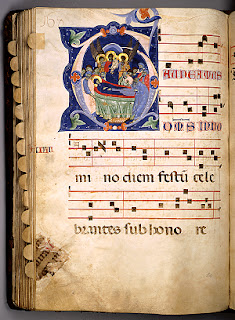 GAUDEAMUS
OMS INDO
mi no diem festū cele
brantes sub hono re